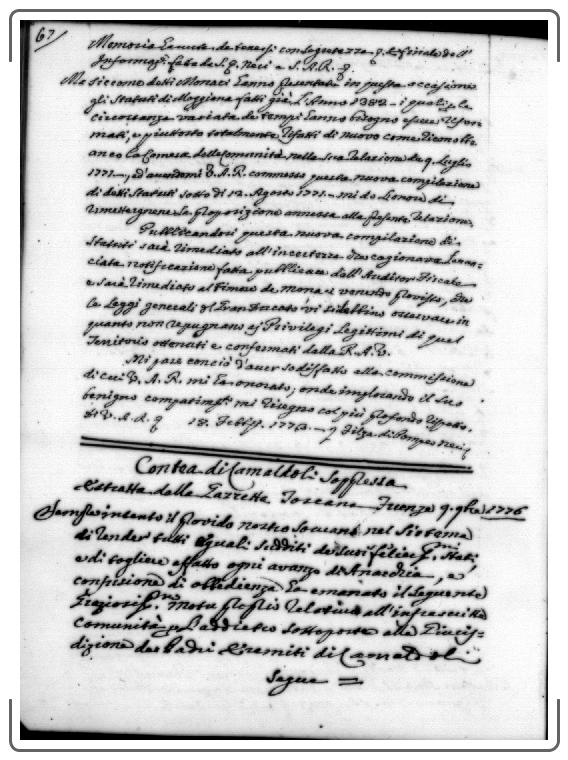 67
Memoria
Informaz. fatta da S. P. Neri a S. A. R.
Ma siccome detti Monaci hanno presentato in questa occasione
gli Statuti di Moggiona fatti già L'Anno 1382 - i quali p le
circostanze variate de tempi hanno bisogno essere Rifor-
mati, e piuttosto totalmente Rifatti di nuovo come
la Camera delle Comunità nella sua Relazione de 9. Luglio
1771 -, ed avendomi V. A. R. commesso questa nuova compilazione
di detti Statuti sotto dì 12. Agosto 1771 - mi do l'onore di
Umettergnene la proposizione annessa alla presente Relazione.
Pubblicandosi questa nuova compilazione di
Statuti sarà rimediato all'incertezza che cagionava
ciata notificazione fatta pubblicare dall'Auditor Fiscale
e sarà rimediato al timore de Monaci venendo provisto, che
le Leggi generali del Gran Ducato vi si debbino osservare in
quanto non repugnano a Privilegi Legittimi di quel
Territorio ottenuti e confermati dalla R. A. V.
Mi pare con ciò d'aver sodisfatto alla commissione
di cui V. A. R. mi ha onorato, onde implorando il suo
benigno compatim. mi rassegno col più profondo rispetto.
di V. A. R. 18. 1773 - Filza di Pompeo Neri
Contea di Camaldoli Soppressa
Estratta dalla Gazzetta Toscana Firenze 9. 9bre 1776
Sempre intento il provido nostro Sovrano nel Sistema
di render tutti eguali i sudditi de suoi felici Stati,
e di togliere affatto ogni avanzo di Anarchia, e
confusione di obbedienza ha emanato il seguente
Graziosiss. motu proprio relativo all'infrascritta
comunità p l'addietro sottoposta alla Giuris-
dizione de Padri Eremiti di Camaldoli
Segue =